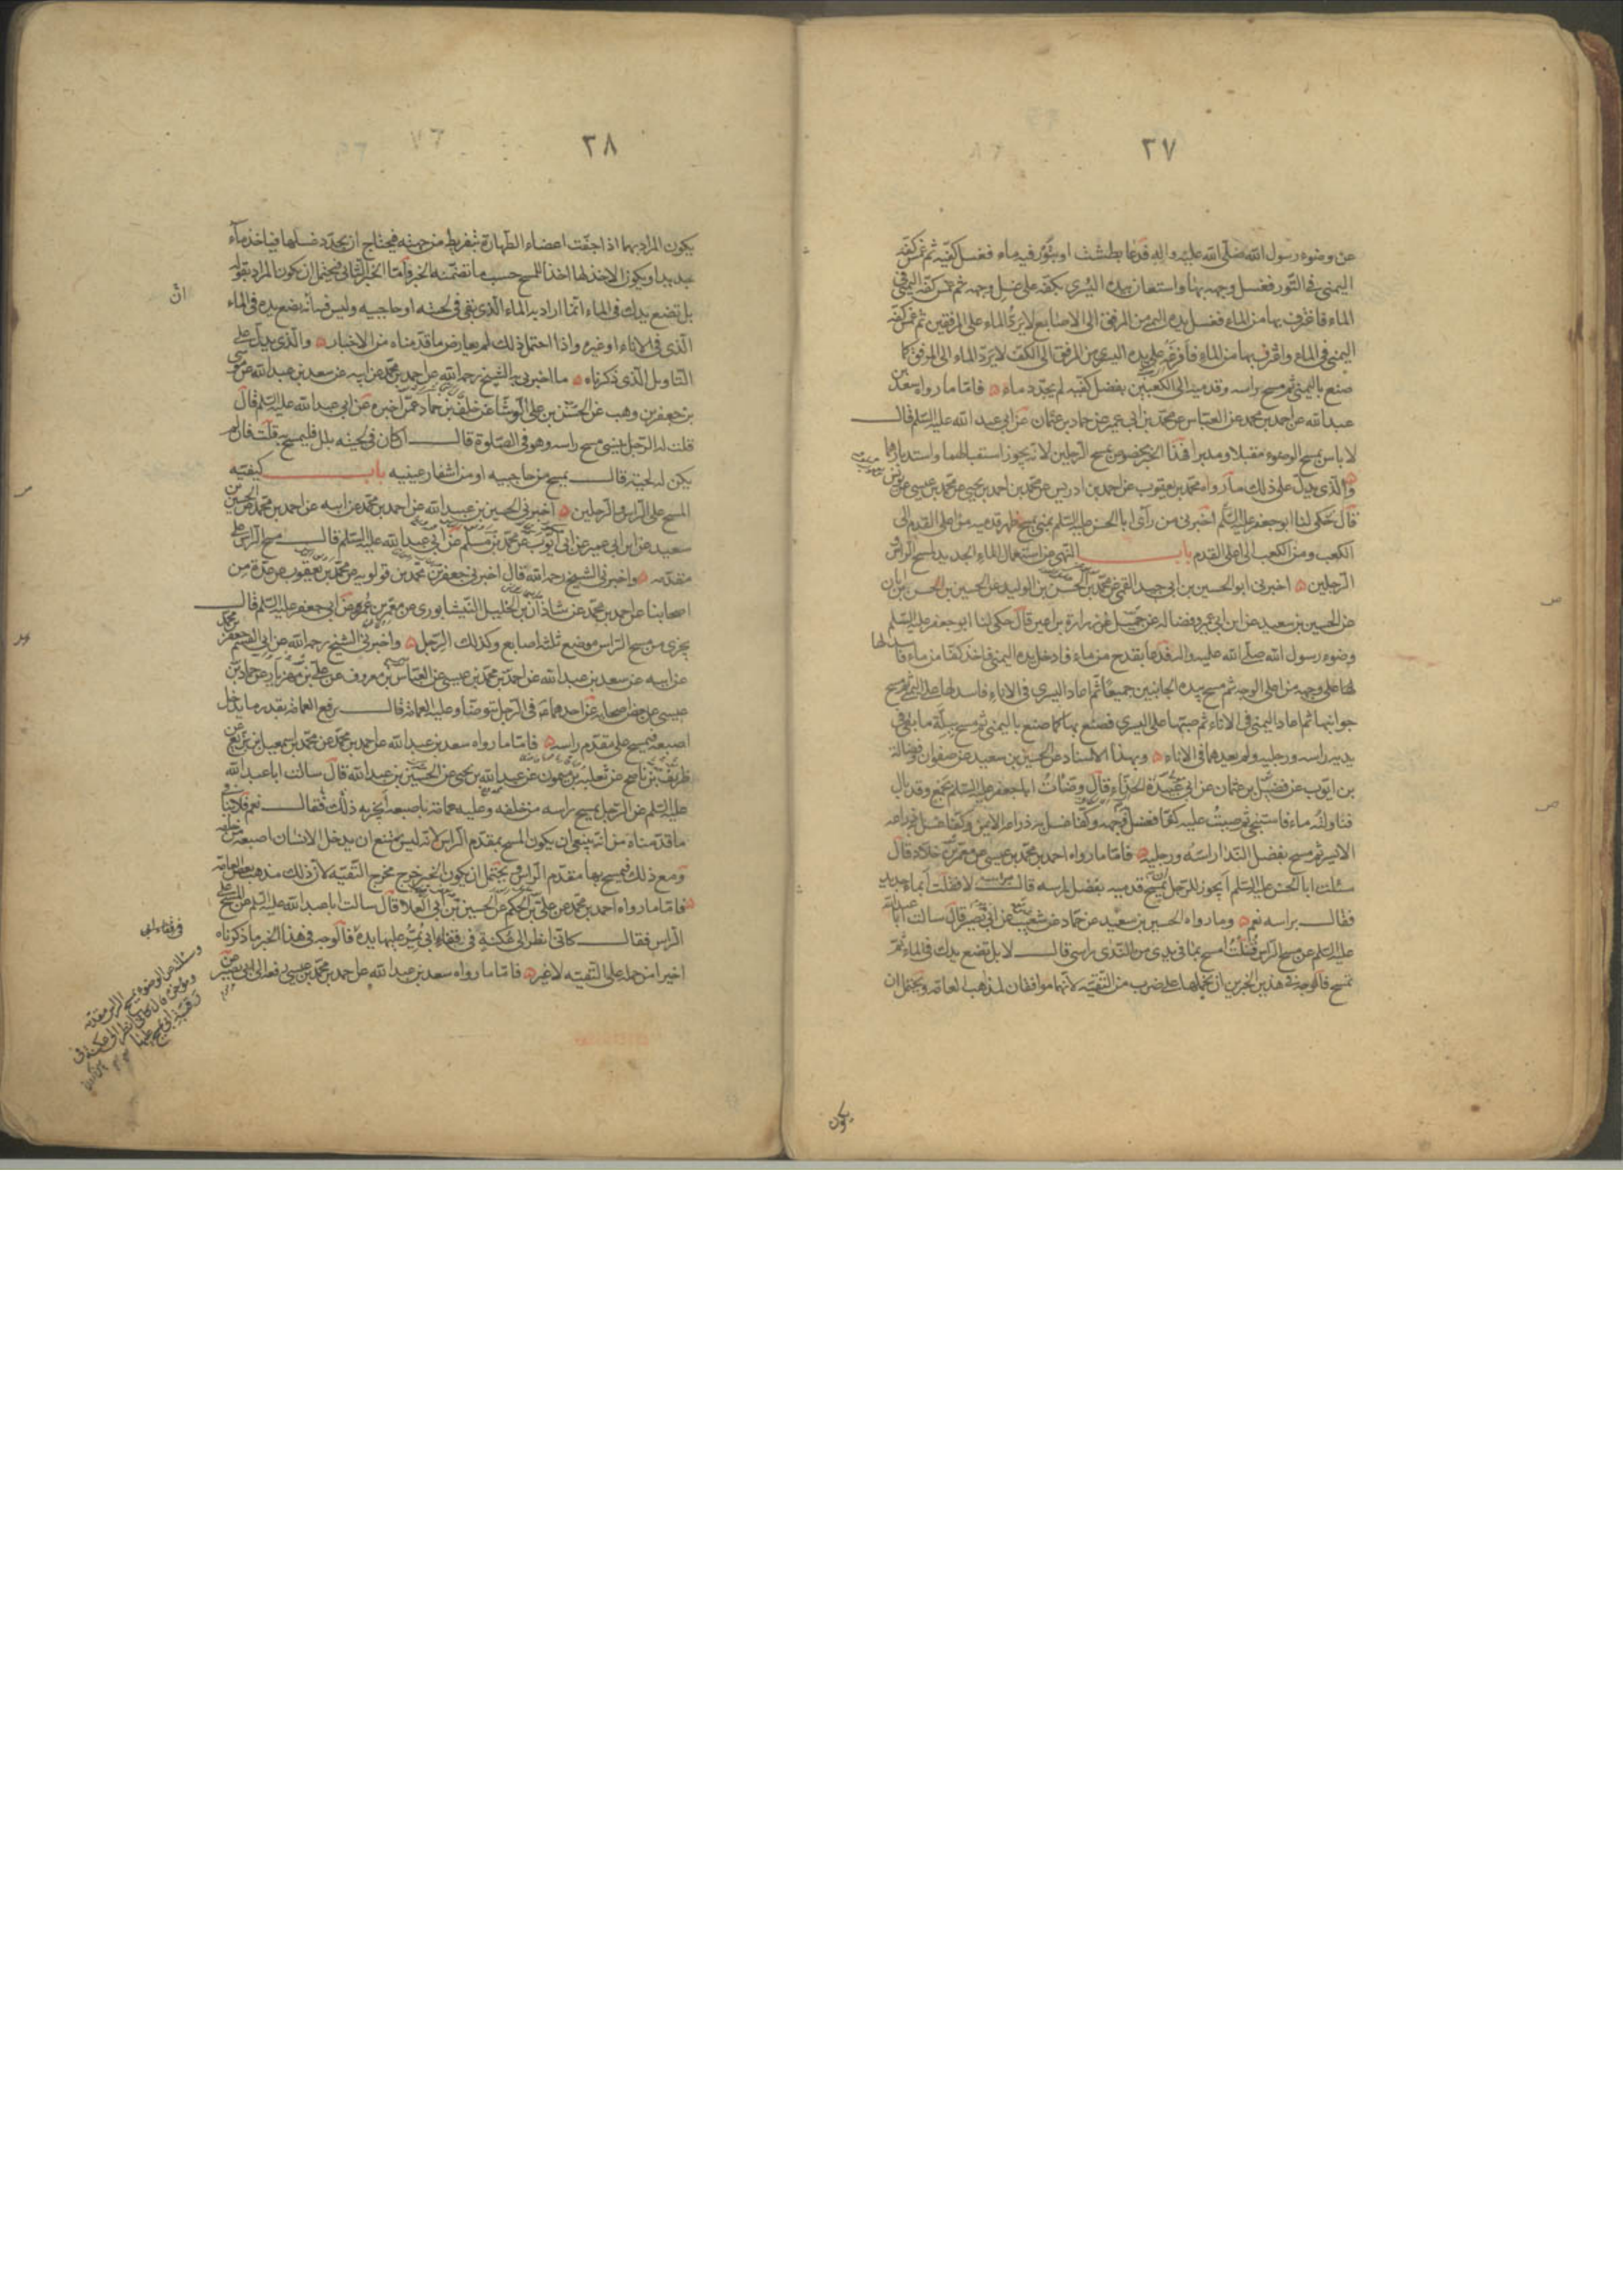 ٢٧
عن وضوء رسول الله صلى الله عليه واله فدعا بطشت او بتور فيه ماء فغسل كفيه ثم غمس كفه
اليمنى في التور فغسل وجهه بها واستعان بيده اليسرى بكفه على غسل وجهه ثم غمس كفه اليمنى في
الماء فاغترف بها من الماء فغسل يده اليمنى من المرفق الى الاصابع لا يرد الماء على المرفقين ثم غمس كفه
اليمنى في الماء واغترف بها من الماء فافرغه على يده اليسرى من المرفق الى الكف لا يرد الماء الى المرفق كما
صنع باليمنى ثم مسح راسه وقدميه الى الكعبين بفضل كفيه لم يجدد ماء فاما ما رواه سعد بن
عبد الله عن احمد بن محمد عن العباس عن محمد بن ابي عمير عن حماد بن عثمان عن ابي عبد الله عليه السلم قال
لا باس بمسح الوضوء مقبلا ومدبرا فهذا الخبر مخصوص بمسح الرجلين لانه يجوز استقبالهما واستدبارهما
والذي يدل على ذلك ما رواه محمد بن يعقوب عن احمد بن ادريس عن محمد بن احمد بن يحيى عن محمد بن عيسى عن يونس
قال اخبرني من راى ابا الحسن عليه السلم بمنى يمسح ظهر قدميه من اعلى القدم الى
الكعب ومن الكعب الى اعلى القدم باب النهي عن استعمال الماء الجديد لمسح الراس و
الرجلين اخبرني ابو الحسين بن ابي جيد القمي عن محمد بن الحسن بن الوليد عن الحسين بن الحسن بن ابان
عن الحسين بن سعيد عن ابن ابي عمير وفضالة عن جميل عن زرارة بن اعين قال حكى لنا ابو جعفر عليه السلم
وضوء رسول الله صلى الله عليه واله فدعا بقدح من ماء فادخل يده اليمنى فاخذ كفا من ماء فاسدلها
على وجهه من اعلى الوجه ثم مسح بيده الجانبين جميعا ثم اعاد اليسرى في الاناء فاسدلها على اليمنى ثم مسح
جوانبها ثم اعاد اليمنى في الاناء ثم صبها على اليسرى فصنع بها كما صنع باليمنى ثم مسح ببلة ما بقي في
يديه راسه ورجليه ولم يعدهما في الاناء وبهذا الاسناد عن الحسين بن سعيد عن صفوان وفضالة
بن ايوب عن فضيل بن عثمان عن ابي عبيدة الحذاء قال وضات ابا جعفر عليه السلم بجمع وقد بال
فناولته ماء فاستنجى ثم صببت عليه كفا فغسل وجهه وكفا غسل به ذراعه الايمن وكفا غسل به ذراعه
الايسر ثم مسح بفضل الندا راسه ورجليه فاما ما رواه احمد بن محمد بن عيسى عن معمر بن خلاد قال
سئلت ابا الحسن عليه السلم ايجوز للرجل ان يمسح قدميه بفضل راسه قال لا فقلت ابماء جديد
فقال براسه نعم وما رواه الحسين بن سعيد عن حماد عن شعيب عن ابي بصير قال سالت ابا عبد الله
عليه السلم عن مسح الراس قلت امسح بما في يدي من الندى راسي قال لا بل تضع يدك في الماء ثم
تمسح فالوجه في هذين الخبرين ان نحملهما على ضرب من التقية لانهما موافقان لمذهب العامة ويحتمل ان
يكون
٢٨
يكون المراد بهما اذا جفت اعضاء الطهارة بتفريط من جهته فيحتاج ان يجدد غسلها فياخذ ماء
جديدا ويكون الاخذ لها اخذا للمسح حسب ما تضمنه الخبر فاما الخبر الثاني فيحتمل ان يكون المراد بقوله
بل تضع يدك في الماء انما اراد به الماء الذي بقي في لحيته او حاجبيه وليس فيه انه يضع يده في الماء
ان
الذي في الاناء او غيره واذا احتمل ذلك لم يعارض ما قدمناه من الاخبار والذي يدل على
التاويل الذي ذكرناه ما اخبرني به الشيخ رحمه الله عن احمد بن محمد عن ابيه عن سعد بن عبد الله عن موسى
بن جعفر بن وهب عن الحسن بن علي الوشا عن خلف بن حماد عمن اخبره عن ابي عبد الله عليه السلم قال
قلت له الرجل ينسى مسح راسه وهو في الصلوة قال ان كان في لحيته بلل فليمسح به قلت فان لم
يكن له لحية قال يمسح من حاجبيه او من اشفار عينيه باب كيفية
المسح على الراس والرجلين اخبرني الحسين بن عبيد الله عن احمد بن محمد عن ابيه عن احمد بن محمد عن الحسين بن
سعيد عن ابن ابي عمير عن ابي ايوب عن محمد بن مسلم عن ابي عبد الله عليه السلم قال مسح الراس على
مقدمه واخبرني الشيخ رحمه الله قال اخبرني جعفر بن محمد بن قولويه عن محمد بن يعقوب عن عدة من
اصحابنا عن احمد بن محمد عن شاذان بن الخليل النيشابوري عن معمر بن عمر عن ابي جعفر عليه السلم قال
يجزي من مسح الراس موضع ثلث اصابع وكذلك الرجل واخبرني الشيخ رحمه الله عن ابي القسم جعفر بن محمد
عن ابيه عن سعد بن عبد الله عن احمد بن محمد بن عيسى عن العباس بن معروف عن علي بن مهزيار عن حماد بن
عيسى عن بعض اصحابه عن احدهما في الرجل يتوضا وعليه العمامة قال يرفع العمامة بقدر ما يدخل
اصبعه فيمسح على مقدم راسه فاما ما رواه سعد بن عبد الله عن احمد بن محمد عن محمد بن اسمعيل بن بزيع عن
ظريف بن ناصح عن ثعلبة بن ميمون عن عبد الله بن يحيى عن الحسين بن عبد الله قال سالت ابا عبد الله
عليه السلم عن الرجل يمسح راسه من خلفه وعليه عمامة باصبعه ايجزيه ذلك فقال نعم فلا ينافي
ما قدمناه من انه ينبغي ان يكون المسح بمقدم الراس لانه ليس يمتنع ان يدخل الانسان اصبعه من خلفه
ومع ذلك فيمسح بها مقدم الراس ويحتمل ان يكون الخبر خرج مخرج التقية لان ذلك مذهب بعض العامة
فاما ما رواه احمد بن محمد عن علي بن الحكم عن الحسين بن ابي العلا قال سالت ابا عبد الله عليه السلم عن المسح على
الراس فقال كاني انظر الى عكنة في قفاء ابي يمر عليها يده فالوجه في هذا الخبر ما ذكرناه
اخيرا من حمله على التقية لا غير فاما ما رواه سعد بن عبد الله عن احمد بن محمد بن عيسى رفعه الى ابي بصير عن
في قفاء ابي
وسالته عن الوضوء يمسح الراس مقدمه
ومؤخره قال كاني انظر الى عكنة في
رقبة ابي يمسح عليها